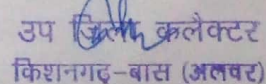 उप जिला कलेक्टर
किशनगढ़-बास (अलवर)